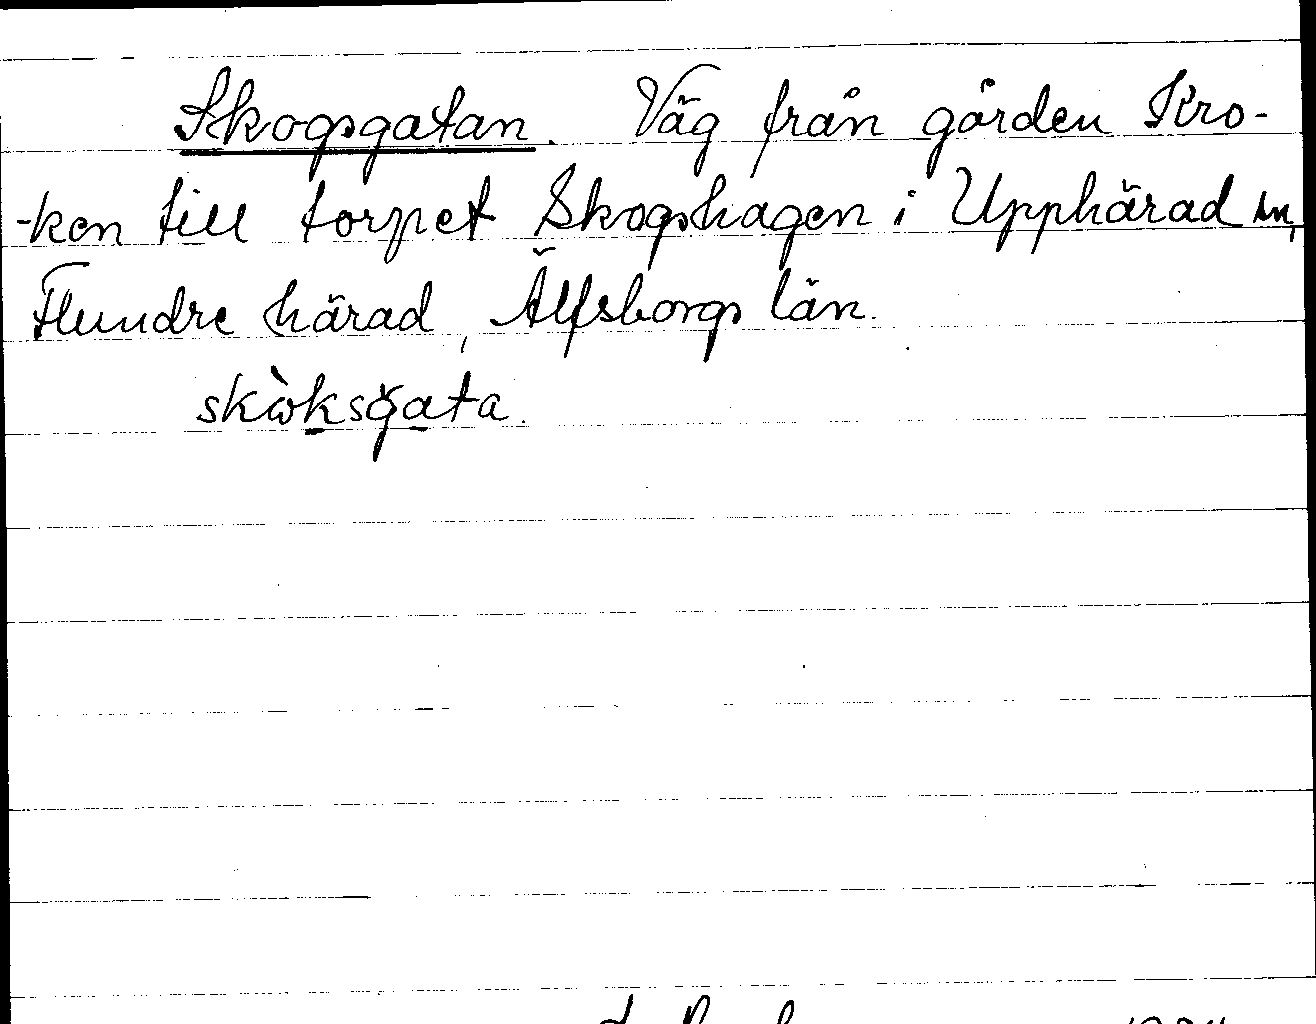 Skogsgatan. Väg från gården Kro-
-ken till torpet Skogshagen i Upphärad sn,
Flundre härad, Älfsborgs län.
skὼksgata.